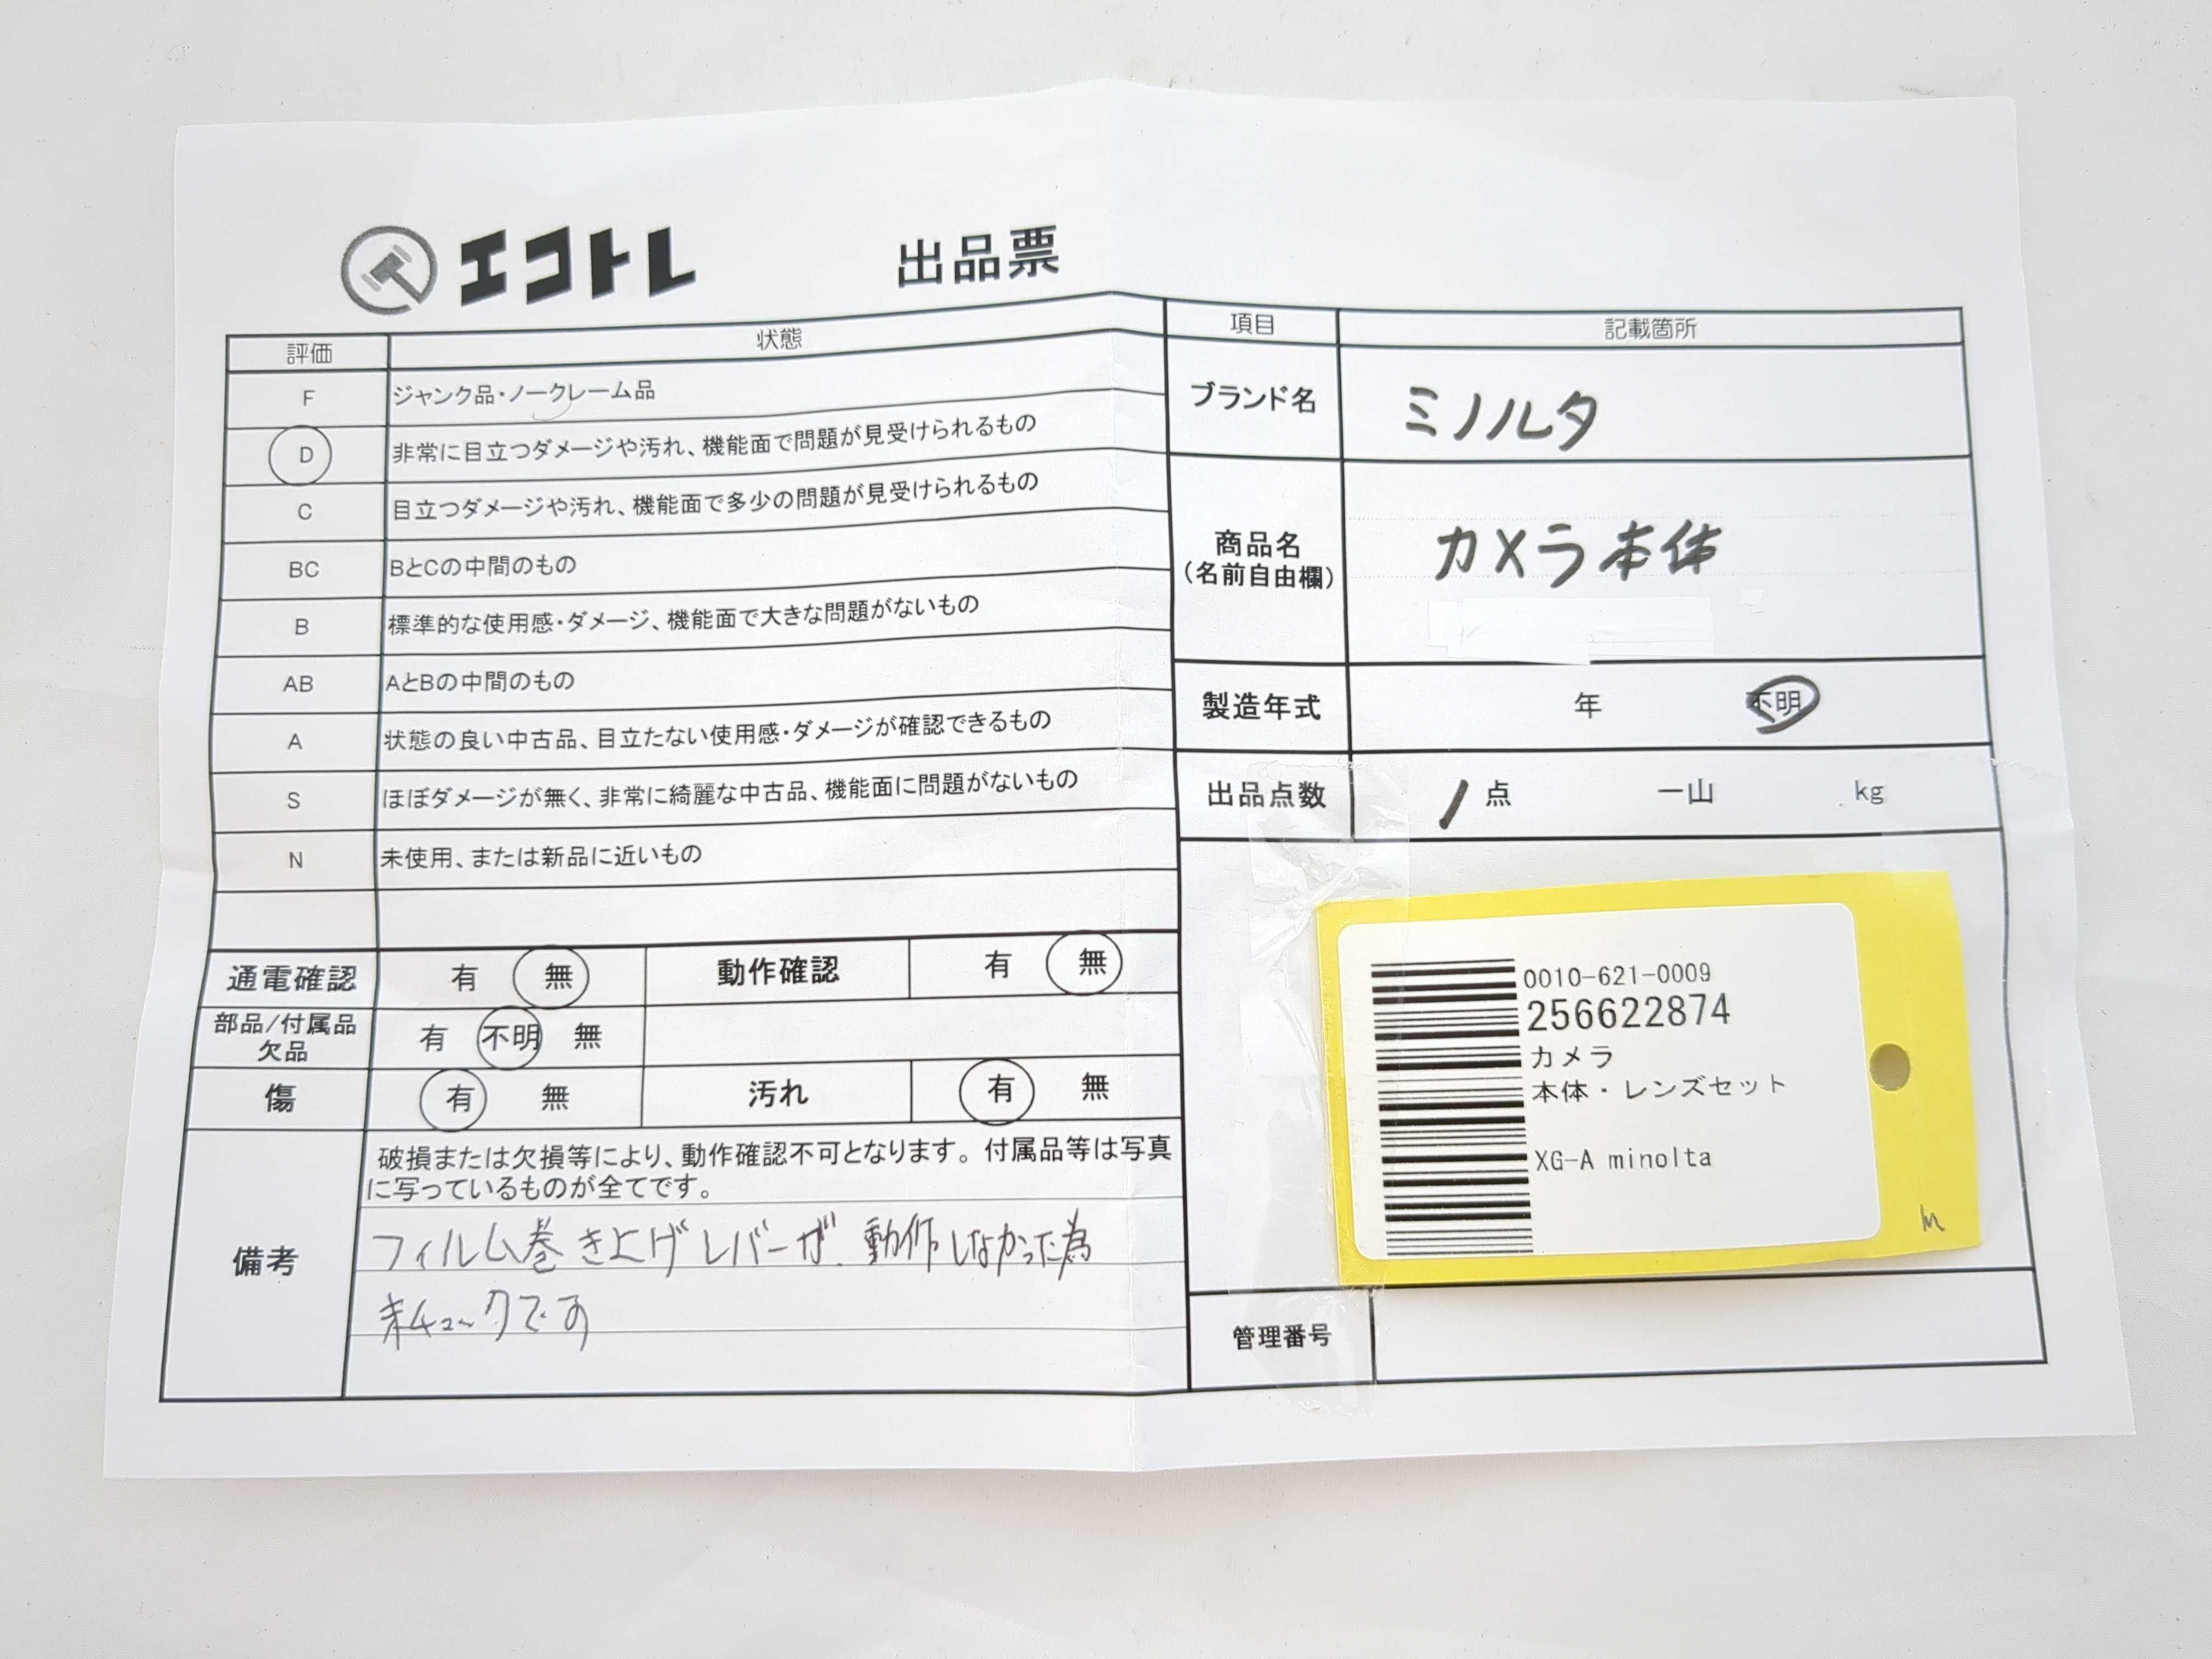 エコトレ
出品票
評価 状態
F ジャンク品・ノークレーム品
D 非常に目立つダメージや汚れ、機能面で問題が見受けられるもの
C 目立つダメージや汚れ、機能面で多少の問題が見受けられるもの
BC BとCの中間のもの
B 標準的な使用感・ダメージ、機能面で大きな問題がないもの
AB AとBの中間のもの
A 状態の良い中古品、目立たない使用感・ダメージが確認できるもの
S ほぼダメージが無く、非常に綺麗な中古品、機能面に問題がないもの
N 未使用、または新品に近いもの
通電確認 有 無 動作確認 有 無
部品/付属品
欠品
有 不明 無
傷 有 無 汚れ 有 無
備考
破損または欠損等により、動作確認不可となります。付属品等は写真
に写っているものが全てです。
フィルム巻き上げレバーが動作しなかった為
未チェックです
項目 記載箇所
ブランド名 ミノルタ
商品名
(名前自由欄)
カメラ本体
製造年式 年 不明
出品点数 1 点 一山 kg
0010-621-0009
256622874
カメラ
本体・レンズセット
XG-A minolta
管理番号